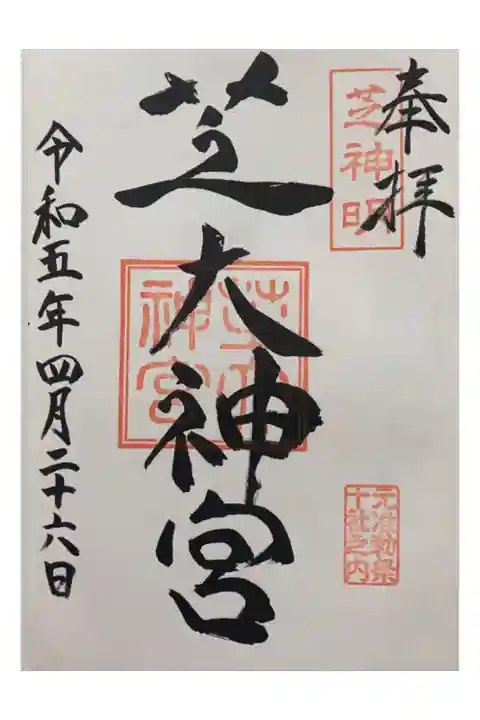 奉拝
芝神明
元准勅祭
十社之内
芝大神宮
芝大
神宮
令和五年四月二十六日